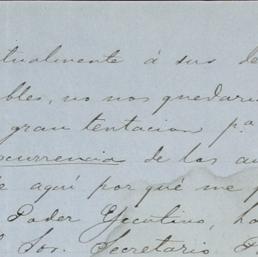 tualmente á sus de
bles, no nos quedaria
gran tentacion p.ª
ocurrencia de las au
e aquí por qué me p
Poder Ejecutivo, ho
Sor. Secretario